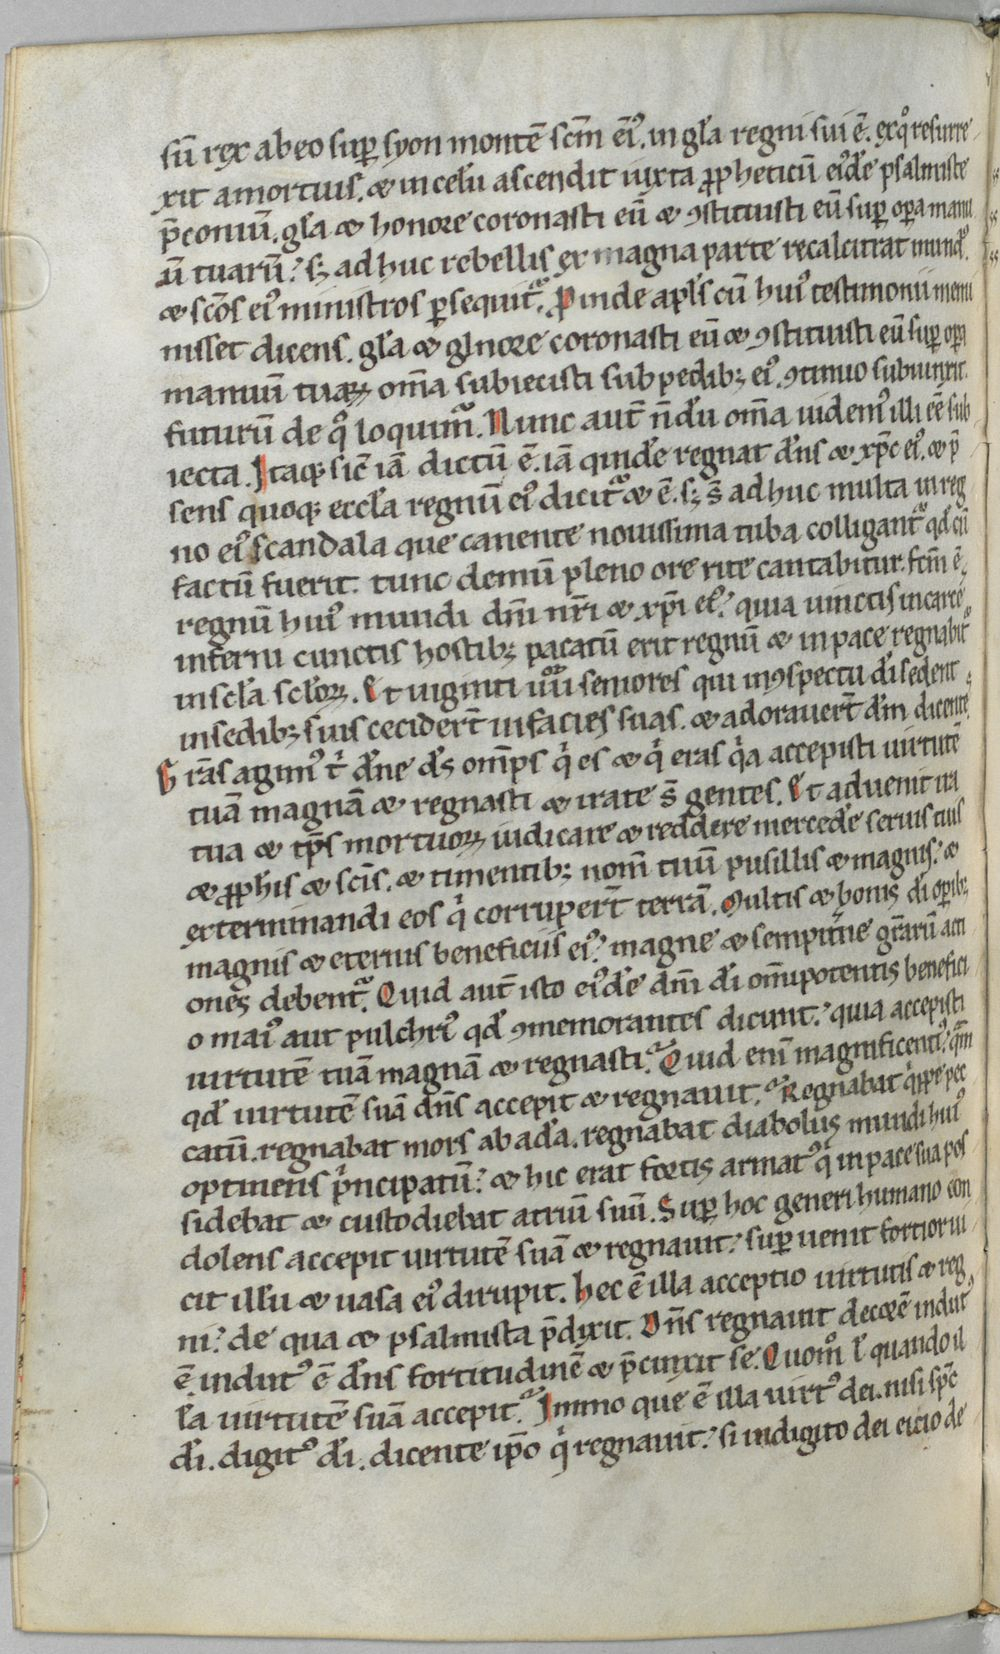 sū rex ab eo sup̄ syon montē scm̄ eiꝰ. in gl̄a regni sui ē. ex qͦ resurre
xit a mortuis. ⁊ in celū ascendit iuxta ꝓpheticū eiꝰdē psalmiste
p̄conium. gl̄a ⁊ honore coronasti eū ⁊ ꝯstituisti eū sup̄ oꝑa manu
ū tuarū. sꝫ adhuc rebellis ex magna parte recalcitrat mundꝰ.
⁊ scōs eiꝰ ministros ꝑsequit᷑. Proinde apl̄s cū huiꝰ testimonii memi
nisset dicens. gl̄a ⁊ honore coronasti eū ⁊ ꝯstituisti eū sup̄ oꝑa
manuū tuaꝝ om̄a subiecisti sub pedibꝫ eiꝰ. ꝯtinuo subiunxit.
futurū de qͦ loquim᷑. Nunc aut̄ n̄dū om̄a uidemꝰ illi eē sub
iecta. Itaqꝫ sic̄ iā dictū ē. iā quidē regnat dn̄s ⁊ xp̄c eiꝰ. ⁊ p̄
sens quoqꝫ eccl̄a regnū eiꝰ dicit᷑ ⁊ ē. sꝫ s̄ adhuc multa in reg
no eiꝰ scandala que canente nouissima tuba colligant᷑ qd̄ cū
factū fuerit. tunc demū pleno ore rite cantabitur. fcm̄ ē
regnū huiꝰ mundi dn̄i nr̄i ⁊ xp̄i eiꝰ. quia uinctis in carce
inferni cunctis hostibꝫ pacatū erit regnū ⁊ in pace regnabit᷑
in scl̄a scl̄oꝝ. Et uiginti iiiiᵒʳ seniores qui in ꝯspectu dī sedent
in sedibꝫ suis cecidert̄ in facies suas. ⁊ adorauert̄ dm̄ dicente
Grās agimꝰ tⁱ dn̄e ds̄ om̄ps qⁱ es ⁊ qⁱ eras qⁱa accepisti uirtutē
tuā magnā ⁊ regnasti ⁊ irate s̄ gentes. Et aduenit ira
tua ⁊ tp̄s mortuoꝝ iudicare ⁊ reddere mercedē seruis tuis
⁊ ꝓphis ⁊ scīs. ⁊ timentibꝫ nom̄ tuū pusillis ⁊ magnis. ⁊
exterminandi eos qⁱ corrupert̄ terrā. Multis ⁊ bonis dī oꝑibꝫ
magnis ⁊ eternis beneficiis eiꝰ. magne ⁊ sempit̄ne gr̄arū acti
ones debent᷑. Quid aut̄ isto eiꝰdē dn̄i dī om̄ipotentis benefici
o maiꝰ aut pulchriꝰ qd̄ ꝯmemorantes dicunt. quia accepisti
uirtutē tuā magnā ⁊ regnasti. Quid enī magnificentiꝰ. qᷓm
qd̄ uirtutē suā dn̄s accepit ⁊ regnauit. Regnabat qⁱppe pec
catū. regnabat mors ab adā. regnabat diabolus mundi huiꝰ
optinens pⁱncipatū. ⁊ hic erat fortis armatꝰ qⁱ in pace sua pos
sidebat ⁊ custodiebat atriū suū. Sup̄ hoc generi humano con
dolens accepit uirtutē suā ⁊ regnauit. sup̄uenit fortior ui
cit illū ⁊ uasa eiꝰ dirupit. hec ē illa acceptio uirtutis ⁊ reg
ni. de qua ⁊ psalmista p̄dixit. Dn̄s regnauit decorē indutꝰ
ē indutꝰ ē dn̄s fortitudinē ⁊ p̄cinxit se. Quomͦ l̄ quando il
la uirtutē suā accepit. Immo que ē illa uirtꝰ dei. nisi sp̄c
dī. digitꝰ dī. dicente ip̄o qⁱ regnauit. si in digito dei eicio de